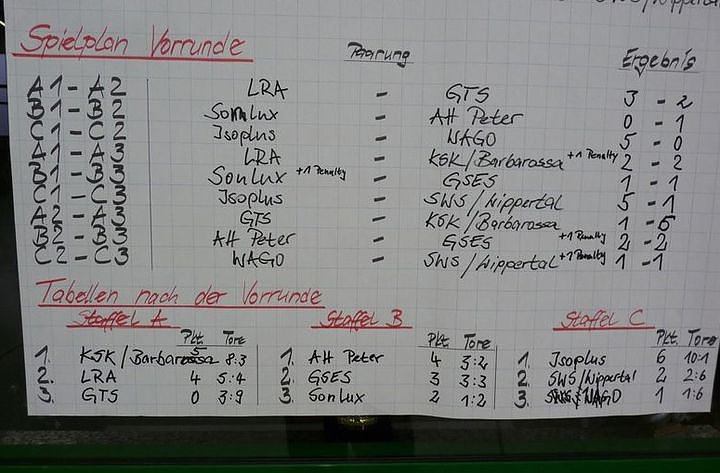 Spielplan Vorrunde Paarung Ergebnis
A1 - A2 LRA - GTS 3 - 2
B1 - B2 SonLux - AH Peter 0 - 1
C1 - C2 Isoplus - WAGO 5 - 0
A1 - A3 LRA - KSK/Barbarossa +1 Penalty 2 - 2
B1 - B3 SonLux +1 Penalty - GSES 1 - 1
C1 - C3 Isoplus - SWS/Wippertal 5 - 1
A2 - A3 GTS - KSK/Barbarossa 1 - 6
B2 - B3 AH Peter - GSES +1 Penalty 2 - 2
C2 - C3 WAGO - SWS/Wippertal +1 Penalty 1 - 1
Tabellen nach der Vorrunde
Staffel A Staffel B Staffel C
Pkt. Tore Pkt. Tore Pkt. Tore
1. KSK/Barbarossa 5 8:3 1. AH Peter 4 3:2 1. Isoplus 6 10:1
2. LRA 4 5:4 2. GSES 3 3:3 2. SWS/Wippertal 2 2:6
3. GTS 0 3:9 3. SonLux 2 1:2 3. WAGO 1 1:6